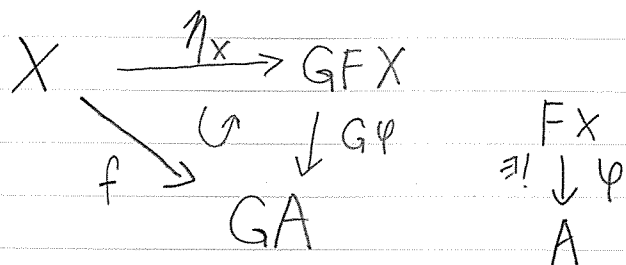 X η_X GFX
f Gφ
GA
FX
∃! φ
A